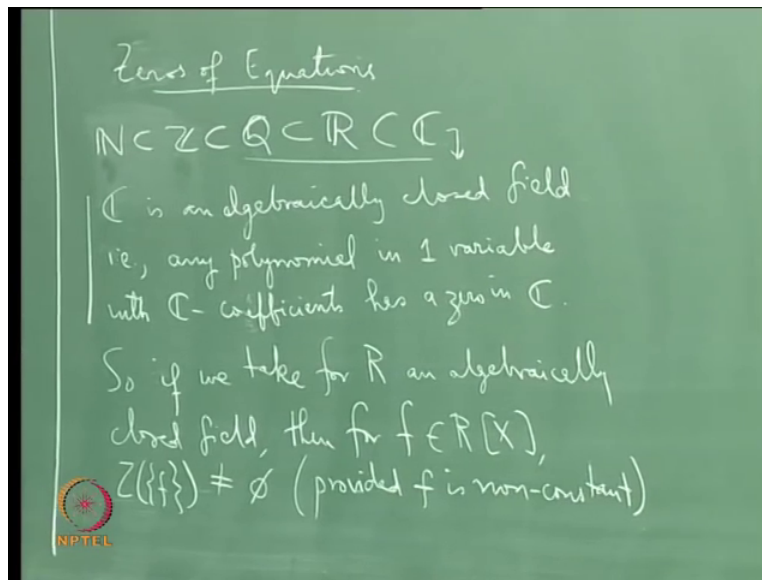 Zeros of Equations
ℕ ⊂ ℤ ⊂ ℚ ⊂ ℝ ⊂ ℂ
ℂ is an algebraically closed field
ie., any polynomial in 1 variable
with ℂ-coefficients has a zero in ℂ.
So if we take for R an algebraically
closed field, then for f ∈ R[X],
Z({f}) ≠ ∅ (provided f is non-constant)
NPTEL